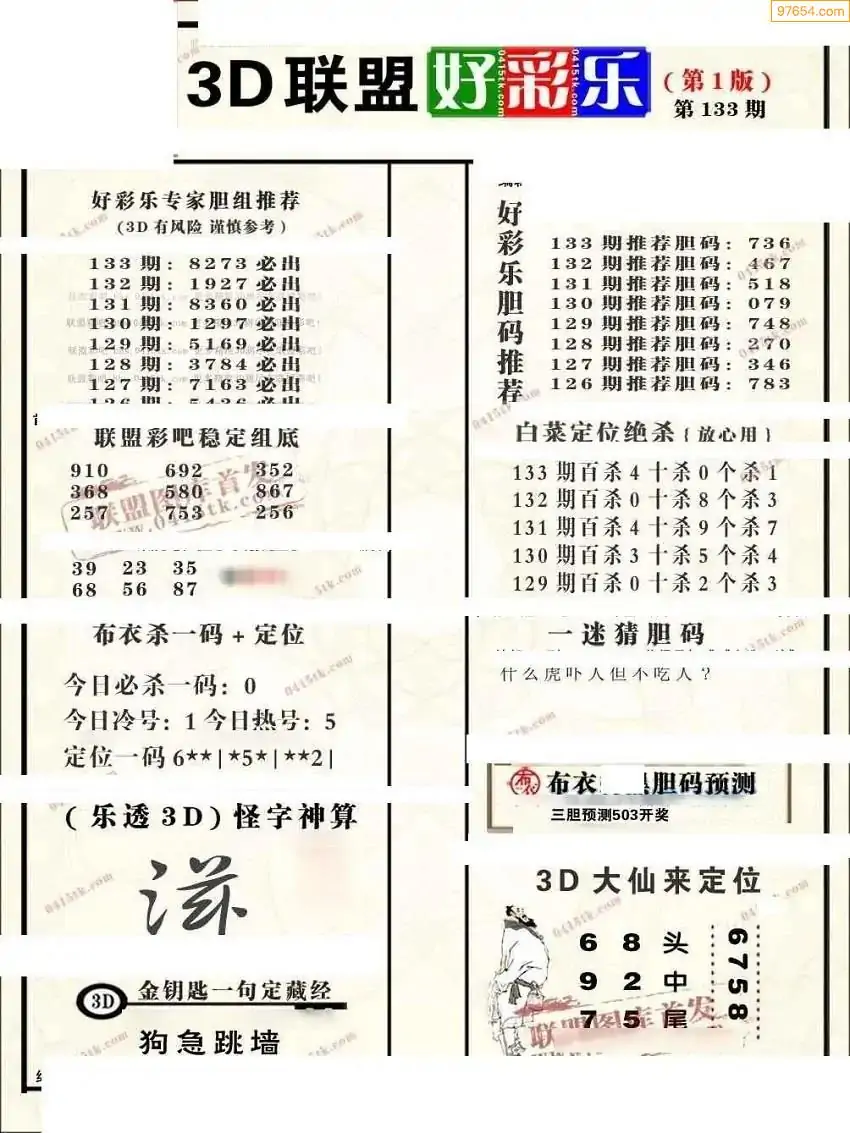 97654.com
3D联盟好彩乐
(第1版)
第133期
好彩乐专家胆组推荐
(3D有风险 谨慎参考)
133期: 8273必出
132期: 1927必出
131期: 8360必出
130期: 1297必出
129期: 5169必出
128期: 3784必出
127期: 7163必出
联盟彩吧稳定组底
910 692 352
368 580 867
257 753 256
39 23 35
68 56 87
布衣杀一码+定位
今日必杀一码: 0
今日冷号: 1 今日热号: 5
定位一码6**|*5*|**2|
(乐透3D)怪字神算
滋
3D 金钥匙一句定藏经
狗急跳墙
好彩乐胆码推荐
133期推荐胆码: 736
132期推荐胆码: 467
131期推荐胆码: 518
130期推荐胆码: 079
129期推荐胆码: 748
128期推荐胆码: 270
127期推荐胆码: 346
126期推荐胆码: 783
白菜定位绝杀{放心用}
133期百杀4十杀0个杀1
132期百杀0十杀8个杀3
131期百杀4十杀9个杀7
130期百杀3十杀5个杀4
129期百杀0十杀2个杀3
一迷猜胆码
什么虎吓人但不吃人?
布衣 胆码预测
三胆预测503开奖
3D大仙来定位
6 8 头
9 2 中
7 5 尾
6758
联盟图库首发
www.0415tk.com